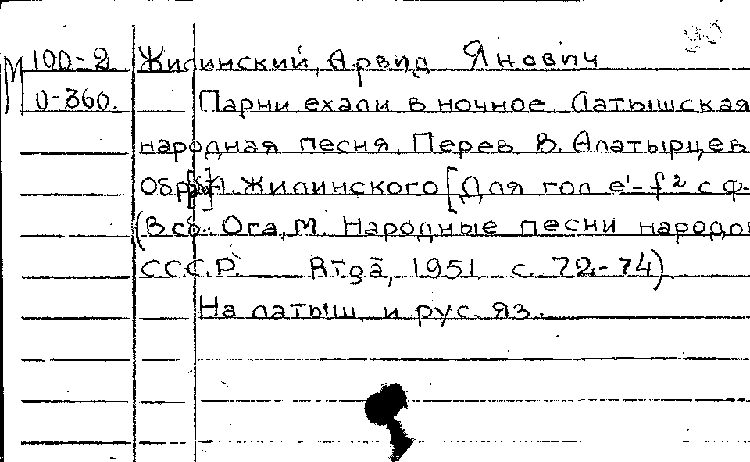 М 100-2 Жилинский, Арвид Янович
О-360. Парни ехали в ночное Латышская
народная песня. Перев В. Алатырцев
Обр. А. Жилинского [Для гол e'-f2 с ф-
(В сб. Ога, М. Народные песни народов
СССР. Rīgā, 1951 с. 72-74)
На латыш и рус. яз.